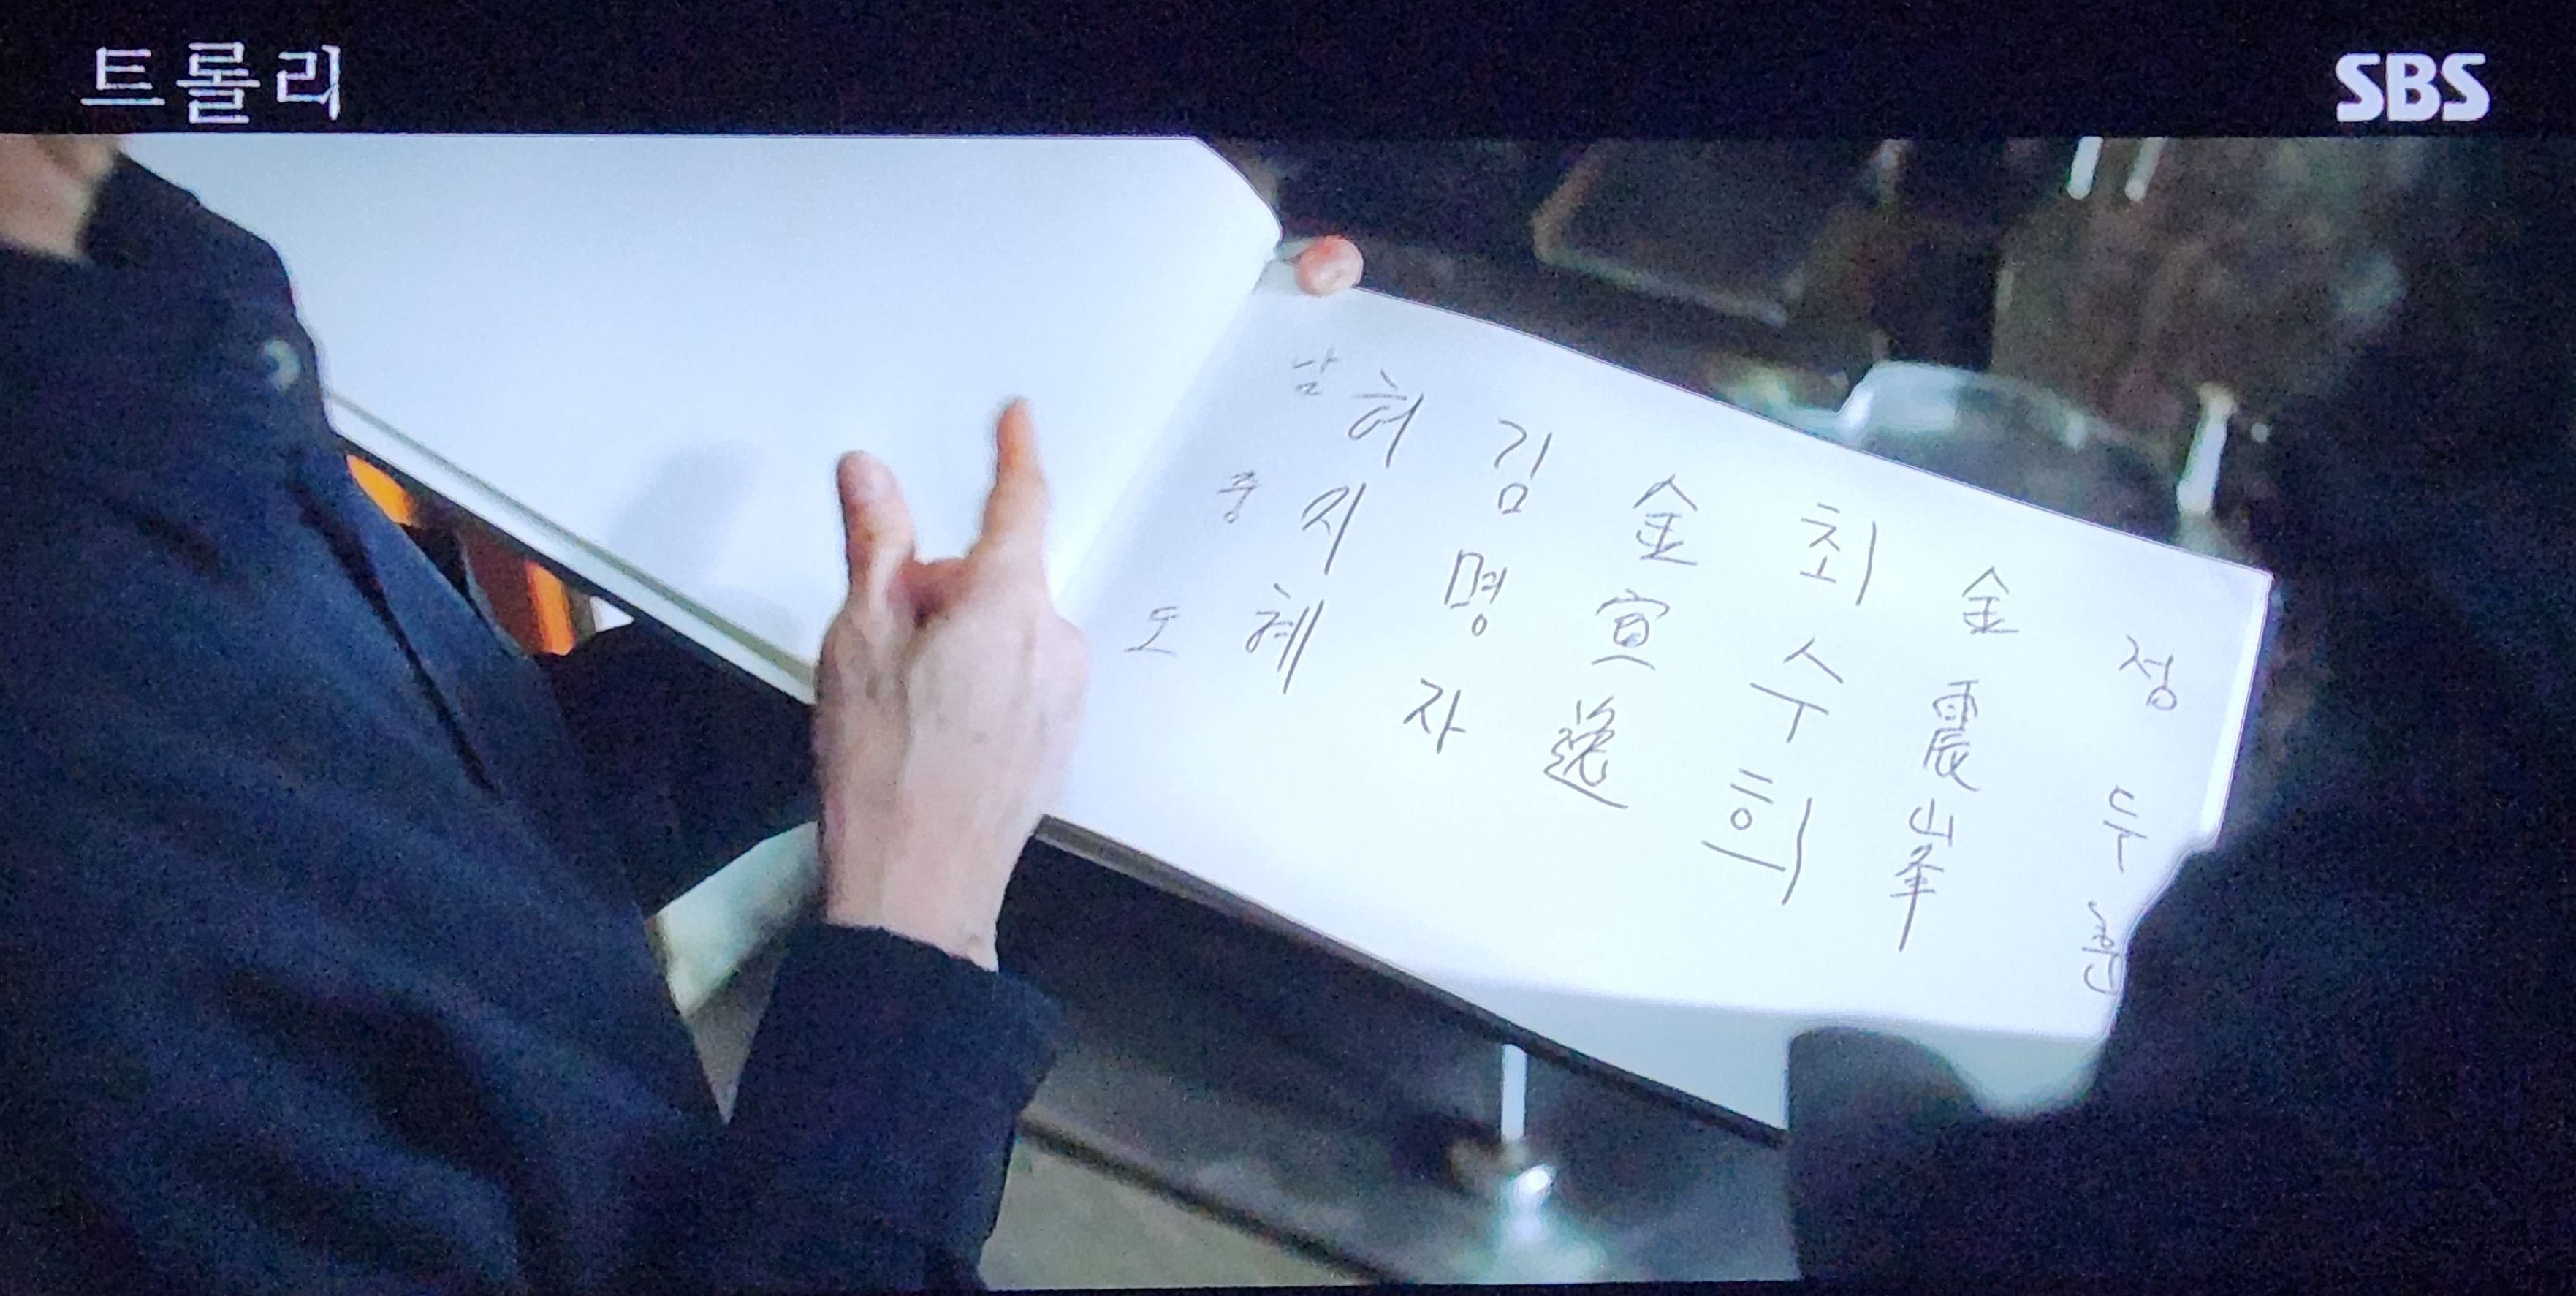 트롤리
SBS
정두
金震峯
최수희
金宣
김명자
허지혜
남중도